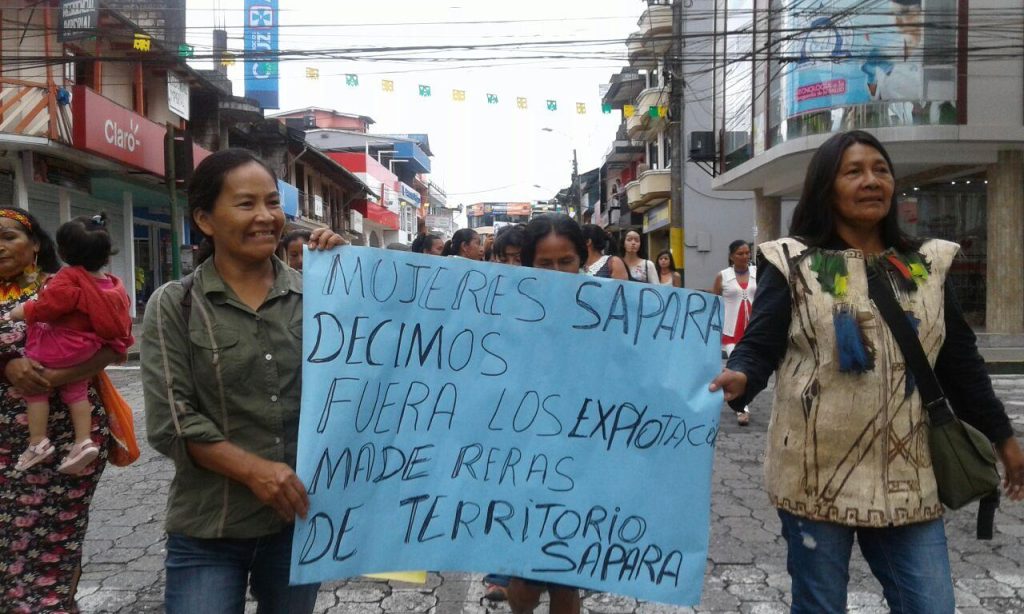 Claro
MUJERES SAPARA
DECIMOS
FUERA LOS EXPLOTACÓ
MADERERAS
DE TERRITORIO
SAPARA